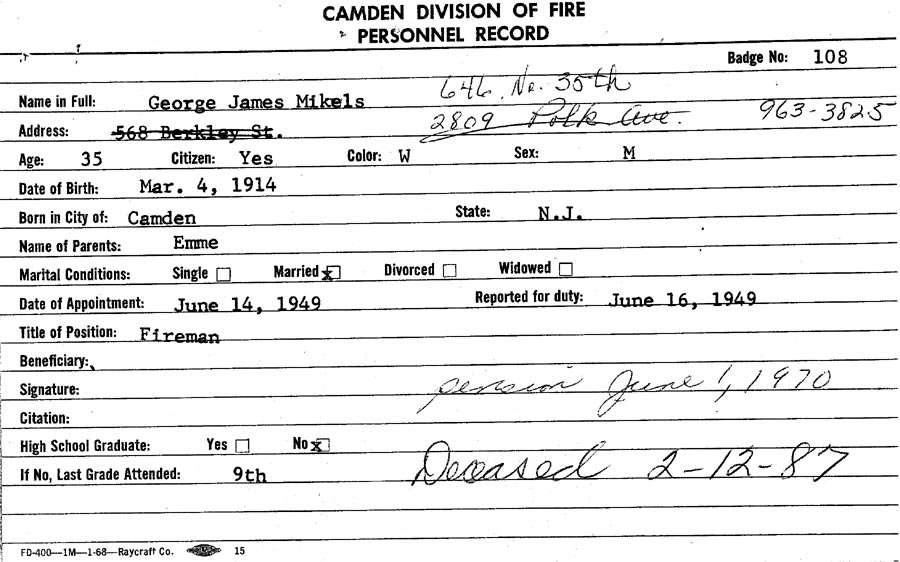 CAMDEN DIVISION OF FIRE
PERSONNEL RECORD
Badge No: 108
Name in Full: George James Mikels 646 No. 35th
Address: 568 Berkley St. 2809 Polk Ave. 963-3825
Age: 35 Citizen: Yes Color: W Sex: M
Date of Birth: Mar. 4, 1914
Born in City of: Camden State: N.J.
Name of Parents: Emme
Marital Conditions: Single Married x Divorced Widowed
Date of Appointment: June 14, 1949 Reported for duty: June 16, 1949
Title of Position: Fireman
Beneficiary:
Signature: pension June 1, 1970
Citation:
High School Graduate: Yes No x
If No, Last Grade Attended: 9th Deceased 2-12-87
FD-400—1M—1-68—Raycraft Co. 15